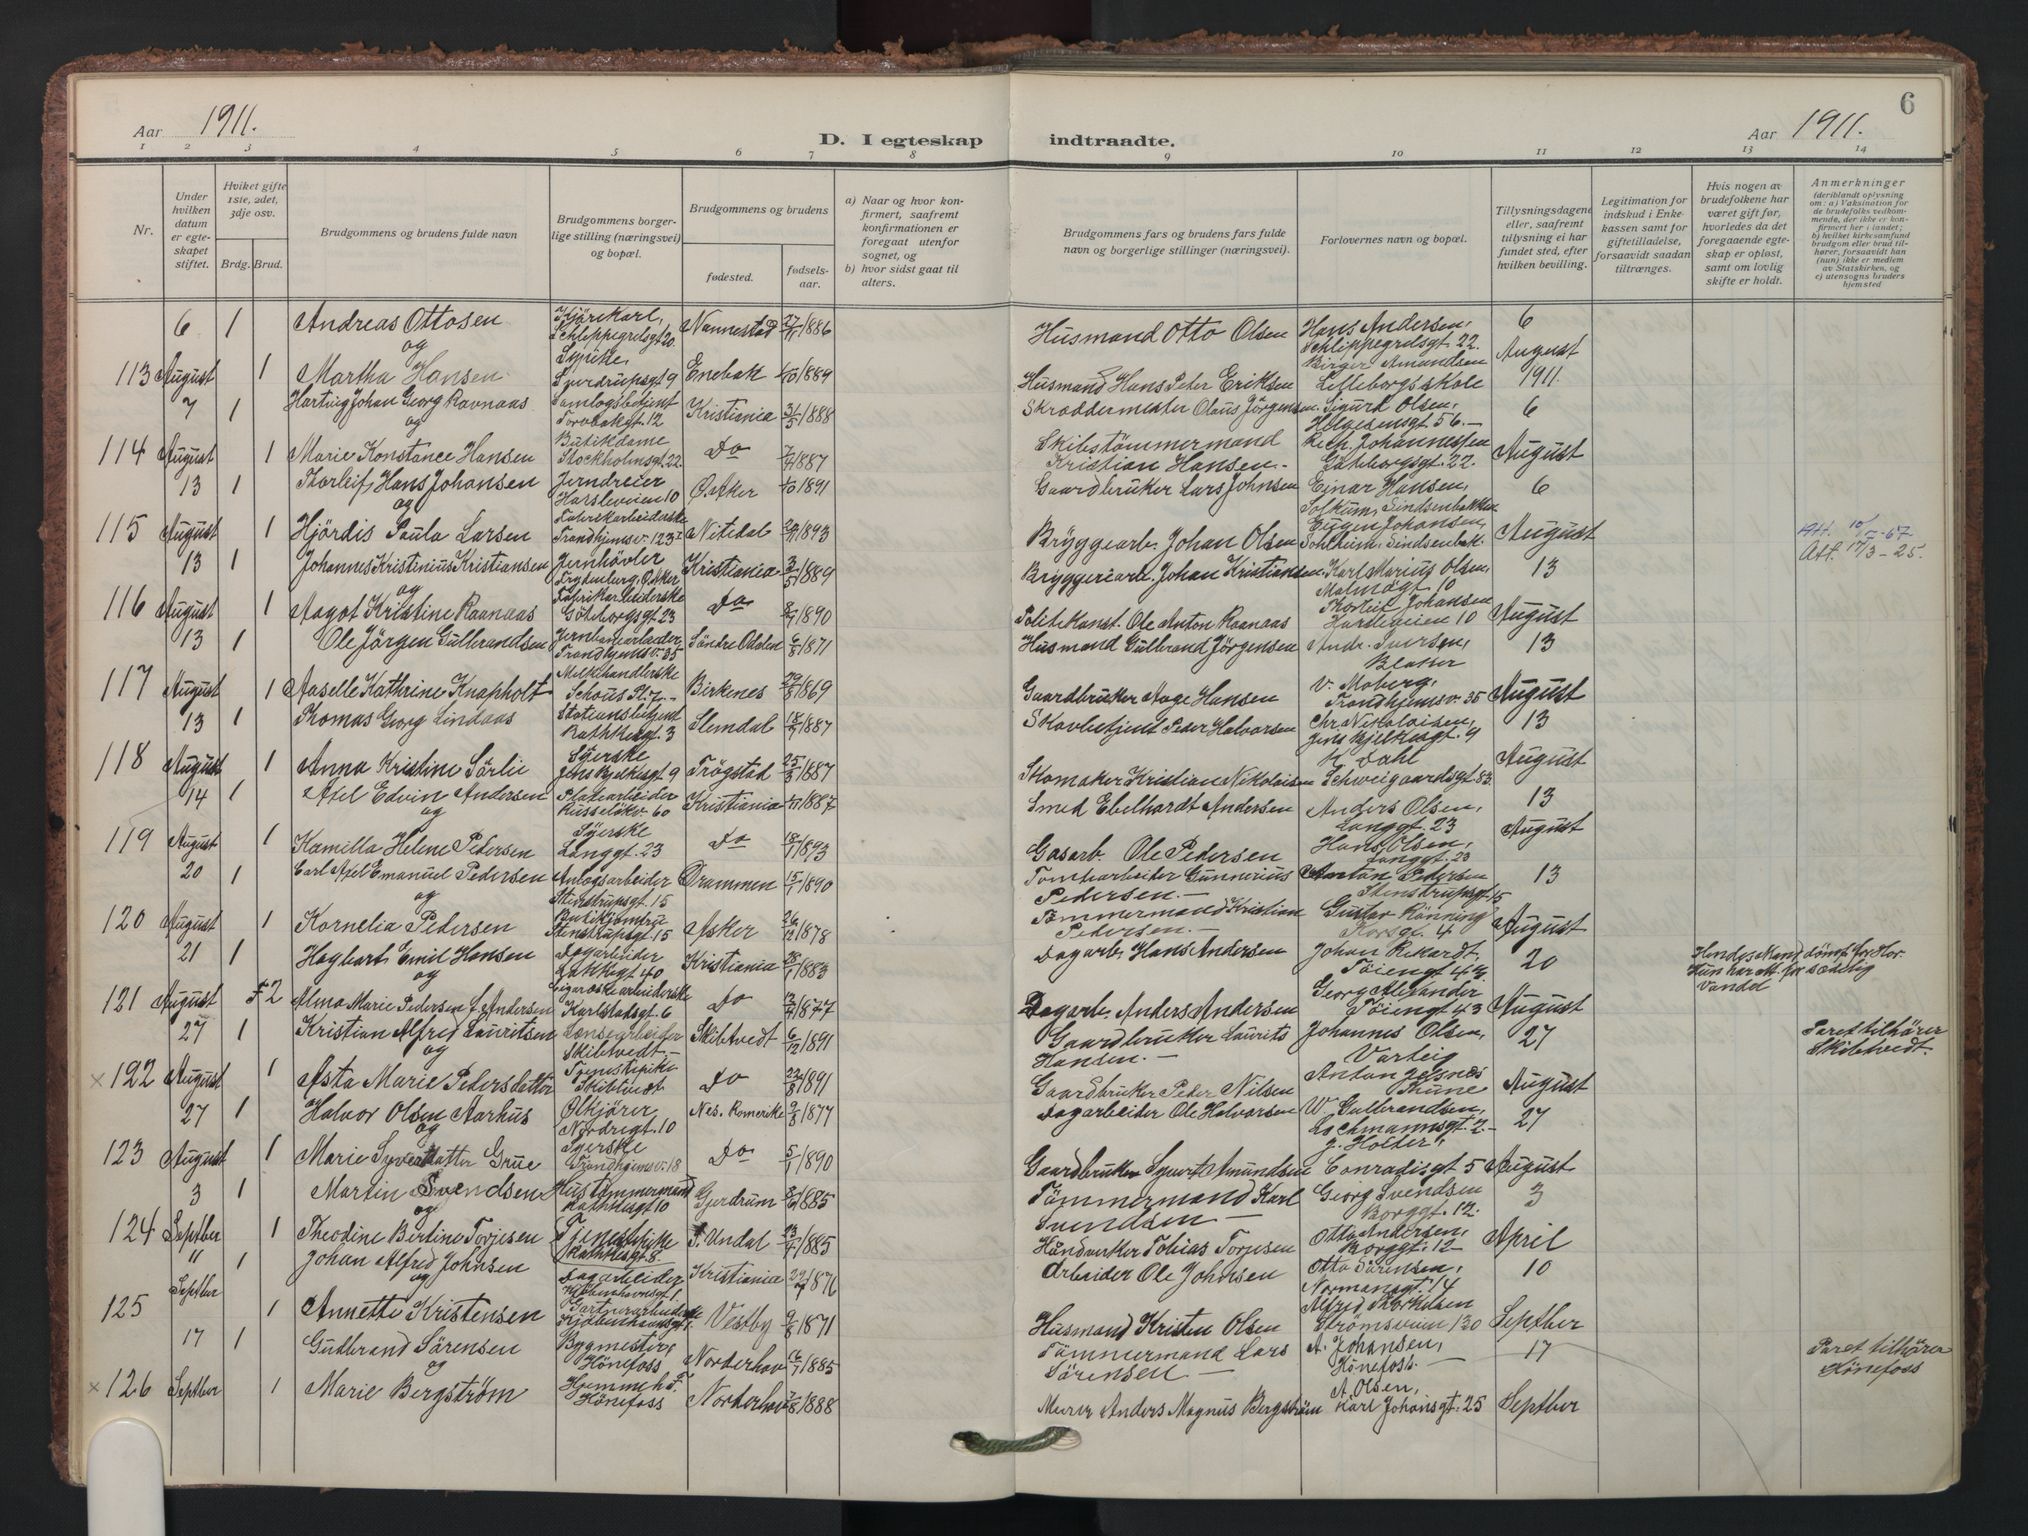 6
Aar 1911.
D. I egteskap indtraadte.
Aar 1911.
1 2 3 4 5 6 7 8 9 10 11 12 13 14
Nr.
Under hvilken datum er egteskapet stiftet.
Hviket gifte 1ste, 2det, 3dje osv.
Brdg. Brud.
Brudgommens og brudens fulde navn
Brudgommens borgerlige stilling (næringsvei) og bopæl.
Brudgommens og brudens
fødested.
fødselsaar.
a) Naar og hvor konfirmert, saafremt konfirmationen er foregaat utenfor sognet, og
b) hvor sidst gaat til alters.
Brudgommens fars og brudens fars fulde navn og borgerlige stillinger (næringsvei).
Forlovernes navn og bopæl.
Tillysningsdagene eller, saafremt tillysning ei har fundet sted, efter hvilken bevilling.
Legitimation for indskud i Enkekassen samt for giftetilladelse, forsaavidt saadan tiltrænges.
Hvis nogen av brudefolkene har været gift før, hvorledes da det foregaaende egteskap er opløst, samt om lovlig skifte er holdt.
Anmerkninger
(deriblandt oplysning om: a) Vaksination for de brudefolks vedkommende, der ikke er konfirmert her i landet; b) hvilket kirkesamfund brudgom eller brud tilhører, forsaavidt han (hun) ikke er medlem av Statskirken, og c) utensogns bruders hjemsted
6 1 Andreas Ottosen Kjørekarl, Schleppegrelsgt 20. Nannestad 1886 Husmand Otto Olsen Hans Andersen, Schleppegrelsgt. 22. 6
og
113 August 1 Martha Hansen Sypike, Sverdrupsgt 9 Enebak 1889 Husmand Hans Peter Eriksen Birger Amundsen Lilleborgskole August 1911.
7 1 Hartvig Johan Georg Ravnaas Torvbakgt. 12 Kristiania 31/5 1888 Skræddermester Olaus Jørgensen. Sigurd Olsen, Helgesensgt 56. 6
og
114 August 1 Marie Konstance Hansen Butikdame Stockholmsgt. 22 Do 1887 Skibstömmermand Kristian Hansen. Göteborgsgt. 22. August
13 1 Thorleif Hans Johansen Jerndreier Hasleveien 10 Ø. Aker 1891 Gaardbruker Lars Johnsen Einar Hansen, 6
og
115 August 1 Hjördis Paula Larsen Trondhjemsv. 123 Nitedal 1893 Bryggearb. Johan Olsen Eugen Johansen, August
Att. 17/3-25.
13 1 Johannes Kristinius Kristiansen Jernhøvler Frydenberg, Ø. Aker Kristiania 1889 Bryggeriarb. Johan Kristiansen. Karl Marius Olsen, Malmøgt 10 13
og
116 August 1 Aagot Kristine Ravnaas Göteborgsgt. 23 Do 1890 Politikonst. Ole Anton Ravnaas Thorleif Johansen Hasleveien 10 August
13 1 Ole Jörgen Gulbrandsen Jernbanearbeider Trondhjemsv. 35 Söndre Odalen 1871 Husmand Gulbrand Jörgensen Andr. Iversen, Blaker 13
117 August 1 Aaselle Kathrine Knapholt Melkehandlerske Schous Pl. 7 Birkenes 29/8 1869 Gaardbruker Aage Hansen V. Moberg, Trondhjemsv. 35 August
13 1 Thomas Georg Lindaas Stationsbetjent Rathkesgt. 3 Slemdal 1887 Skovbetjent Peder Halvorsen Chr. Nikolaisen, Jens Bjelkesgt. 9 13
118 August 1 Anna Kristine Sörlie Syerske Jens Bjelkesgt 9 Trögstad 1887 Skomaker Kristian Nikolaisen K. Dahl Schweigaardsgt 83. August
14 1 Axel Edvin Andersen Platearbeider Russeløkv. 60 Kristiania 1887 Smed Ebelhardt Andersen Anders Olsen, Langgt. 23 13
og
119 August 1 Kamilla Helene Pedersen Syerske Langgt. 23 Do 1893 Gasarb. Ole Pedersen Hans Olsen, Langgt. 23 August
20 1 Carl Axel Emanuel Pedersen Anlægsarbeider Stenstrupsgt. 15 Drammen 1890 Tomtearbeider Gunnerius Pedersen. Anton Pedersen Stenstrupsgt. 15 13
og
120 August 1 Kornelia Pedersen Stenstrupsgt. 15 Asker 26/12 1878 Tömmermand Kristian Pedersen. Gustav Rönning Korsgt. 4 August
21 1 Hagbart Emil Hansen Dagarbeider Lakkegt 40 Kristiania 1883 Dagarb. Hans Andersen Johan Rikardt, Töiengt 43 20
og
Hendes Mand dömt for Hor. Hun har att. for sædelig Vandel
121 August F 2 Alma Marie Pedersen f. Andersen Cigaræskearbeiderske Karlstadsgt. 6 Do 1877 Dagarb. Anders Andersen Georg Alexander Töiengt 43 August
27 1 Kristian Alfred Lauritsen Skibtvedt. Skibtvedt 6/12 1891 Gaardbruker Laurits Hansen. Johannes Olsen, Varteig 27
og
Paret tilhører Skibtvedt.
× 122 August 1 Asta Marie Pedersdatter Tjenestepike Skibtvedt Do 22/8 1891 Gaardbruker Peder Nilsen Anton Jensnes Thune August
27 1 Halvor Olsen Aarhus Ølkjörer Nordregt. 10 Nes. Romerike 1877 Dagarbeider Ole Halvorsen W. Gulbrandsen, 27
og
123 August 1 Marie Syversdatter Grue Syerske Trondhjemsv. 18 Do 1890 Gaardbruker Syvert Amundsen J. Holter, Conradisgt 5 August
3 1 Martin Svendsen Hustömmermand Rathkesgt 10 Gjerdrum 1885 Tömmermand Karl Svendsen Georg Svendsen Borggt. 12. 3
og
124 Septber 1 Theodine Bertine Torjesen Tjenestepike Rathkesgt 8. S. Undal 1885 Handverker Tobias Torjesen Otto Andersen, Borggt. 12 April
" 1 Johan Alfred Johnsen Dagarbeider Kjöbenhavnsgt 1. Kristiania 1876 Arbeider Ole Johnsen Otto Sörensen, Normansgt. 14 10
og
125 Septber 1 Annette Kristensen Gartnerarbeiderske Kjöbenhavnsgt 1. Vestby 9/8 1871 Husmand Kristen Olsen Alfred Thorkelsen Strömsveien 130 Septber
17 1 Gulbrand Sörensen Bygmester, Hönefoss Norderhov 16/7 1885 Tömmermand Lars Sörensen A. Johansen, Hönefoss. 17
og
Paret tilhører Hönefoss
× 126 Septber 1 Marie Bergström Hjemme h. f. Hönefoss Norderhov 1888 Murer Anders Magnus Bergström A. Olsen, Karl Johansgt. 25 Septber